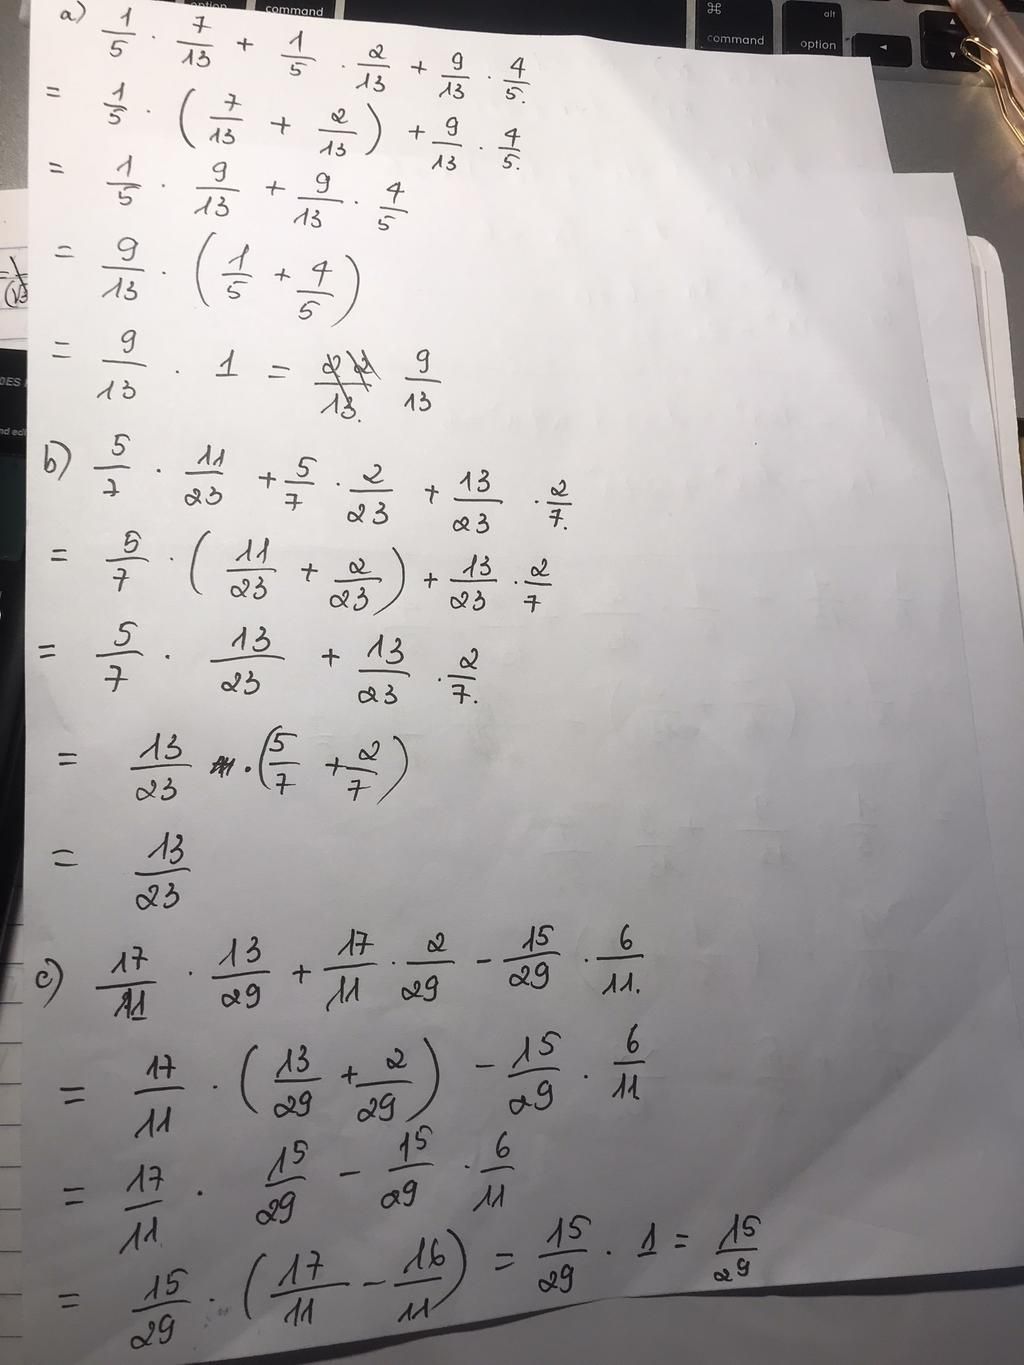 option
command
⌘
command
alt
option
a) 1/5 · 7/13 + 1/5 · 2/13 + 9/13 · 4/5.
= 1/5 · (7/13 + 2/13) + 9/13 · 4/5.
= 1/5 · 9/13 + 9/13 · 4/5
= 9/13 · (1/5 + 4/5)
= 9/13 · 1 = 22/13. 9/13
b) 5/7 · 11/23 + 5/7 · 2/23 + 13/23 · 2/7.
= 5/7 · (11/23 + 2/23) + 13/23 · 2/7
= 5/7 · 13/23 + 13/23 · 2/7.
= 13/23 · (5/7 + 2/7)
= 13/23
c) 17/11 · 13/29 + 17/11 · 2/29 - 15/29 · 6/11.
= 17/11 · (13/29 + 2/29) - 15/29 · 6/11
= 17/11 · 15/29 - 15/29 · 6/11
= 15/29 · (17/11 - 16/11) = 15/29 · 1 = 15/29